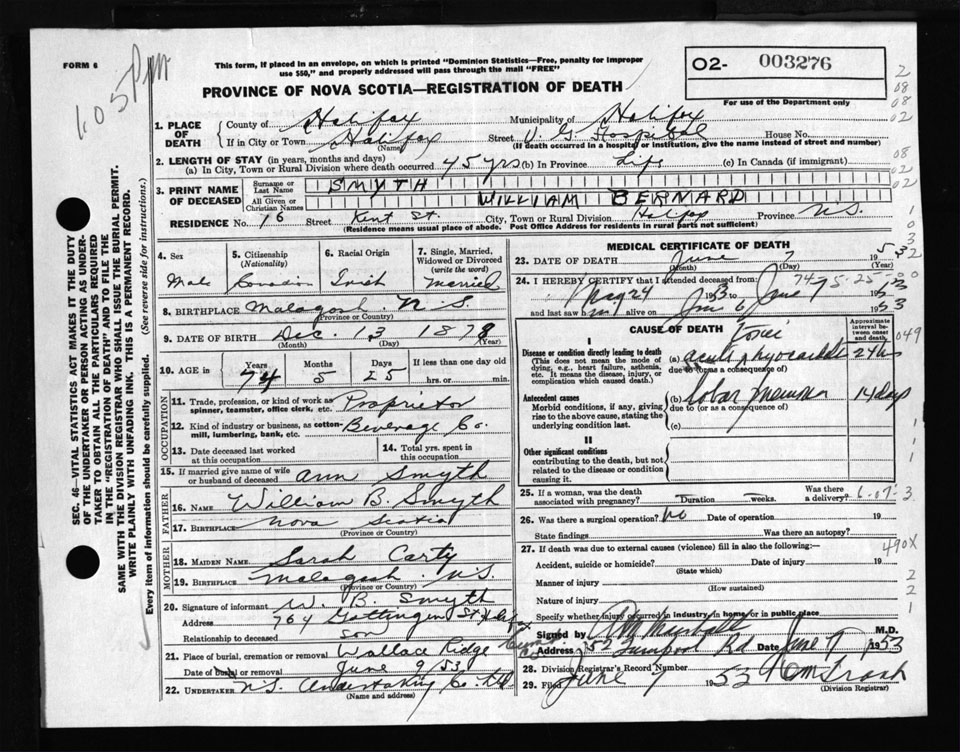 FORM 6
This form, if placed in an envelope, on which is printed "Dominion Statistics—Free, penalty for improper
use $50," and properly addressed will pass through the mail "FREE"
PROVINCE OF NOVA SCOTIA—REGISTRATION OF DEATH
O2- 003276
For use of the Department only
1. PLACE OF DEATH
County of Halifax Municipality of Halifax
If in City or Town Halifax Street V. G. Hospital House No.
(Name) (If death occurred in a hospital or institution, give the name instead of street and number)
2. LENGTH OF STAY (in years, months and days)
(a) In City, Town or Rural Division where death occurred 45 yrs (b) In Province Life (c) In Canada (if immigrant)
3. PRINT NAME OF DECEASED
Surname or Last Name SMYTH
All Given or Christian Names WILLIAM BERNARD
RESIDENCE No. 76 Street Kent St. City, Town or Rural Division Halifax Province N.S.
(Residence means usual place of abode. Post Office Address for residents in rural parts not sufficient)
4. Sex Male
5. Citizenship (Nationality) Canadian
6. Racial Origin Irish
7. Single, Married, Widowed or Divorced (write the word) Married
8. BIRTHPLACE Malagash N.S.
(Province or Country)
9. DATE OF BIRTH Dec. 13 1878
(Month) (Day) (Year)
10. AGE in Years 74 Months 5 Days 25 If less than one day old hrs. or min.
OCCUPATION
11. Trade, profession, or kind of work as spinner, teamster, office clerk, etc. Proprietor
12. Kind of industry or business, as cotton-mill, lumbering, bank, etc. Beverage Co.
13. Date deceased last worked at this occupation
14. Total yrs. spent in this occupation
15. If married give name of wife or husband of deceased Ann Smyth
FATHER
16. NAME William B. Smyth
17. BIRTHPLACE Nova Scotia
(Province or Country)
MOTHER
18. MAIDEN NAME Sarah Carty
19. BIRTHPLACE Malagash N.S.
(Province or Country)
20. Signature of informant W. B. Smyth
Address 764 Gottingen St.
Relationship to deceased son
21. Place of burial, cremation or removal Wallace Ridge
Date of burial or removal June 9/53
22. UNDERTAKER N.S. Undertaking Co. Ltd
(Name and address)
MEDICAL CERTIFICATE OF DEATH
23. DATE OF DEATH June 7 1953
(Month) (Day) (Year)
24. I HEREBY CERTIFY that I attended deceased from:
May 24 1953 to June 7 1953
and last saw him alive on June 6 1953
74-5-25
CAUSE OF DEATH
Approximate interval between onset and death
I
Disease or condition directly leading to death
(This does not mean the mode of dying, e.g., heart failure, asthenia, etc. It means the disease, injury, or complication which caused death.)
(a) Toxic acute myocarditis
due to (or as a consequence of)
Antecedent causes
Morbid conditions, if any, giving rise to the above cause, stating the underlying condition last.
(b) lobar pneumonia 14 days
due to (or as a consequence of)
(c)
II
Other significant conditions
contributing to the death, but not related to the disease or condition causing it.
25. If a woman, was the death associated with pregnancy? Duration weeks. Was there a delivery?
26. Was there a surgical operation? No Date of operation 19
State findings Was there an autopsy?
27. If death was due to external causes (violence) fill in also the following:—
Accident, suicide or homicide? Date of injury 19
(State which)
Manner of injury
(How sustained)
Nature of injury
Specify whether injury occurred in industry, in home, or in public place
Signed by M.D.
Address 52 Rd Date June 7 1953
28. Division Registrar's Record Number
29. Filed June 7 1953
(Division Registrar)
490X
049
SEC. 46—VITAL STATISTICS ACT MAKES IT THE DUTY
OF THE UNDERTAKER OR PERSON ACTING AS UNDER-
TAKER TO OBTAIN ALL THE PARTICULARS REQUIRED
IN THE "REGISTRATION OF DEATH" AND TO FILE THE
SAME WITH THE DIVISION REGISTRAR WHO SHALL ISSUE THE BURIAL PERMIT.
WRITE PLAINLY WITH UNFADING INK. THIS IS A PERMANENT RECORD.
Every item of information should be carefully supplied. (See reverse side for instructions.)